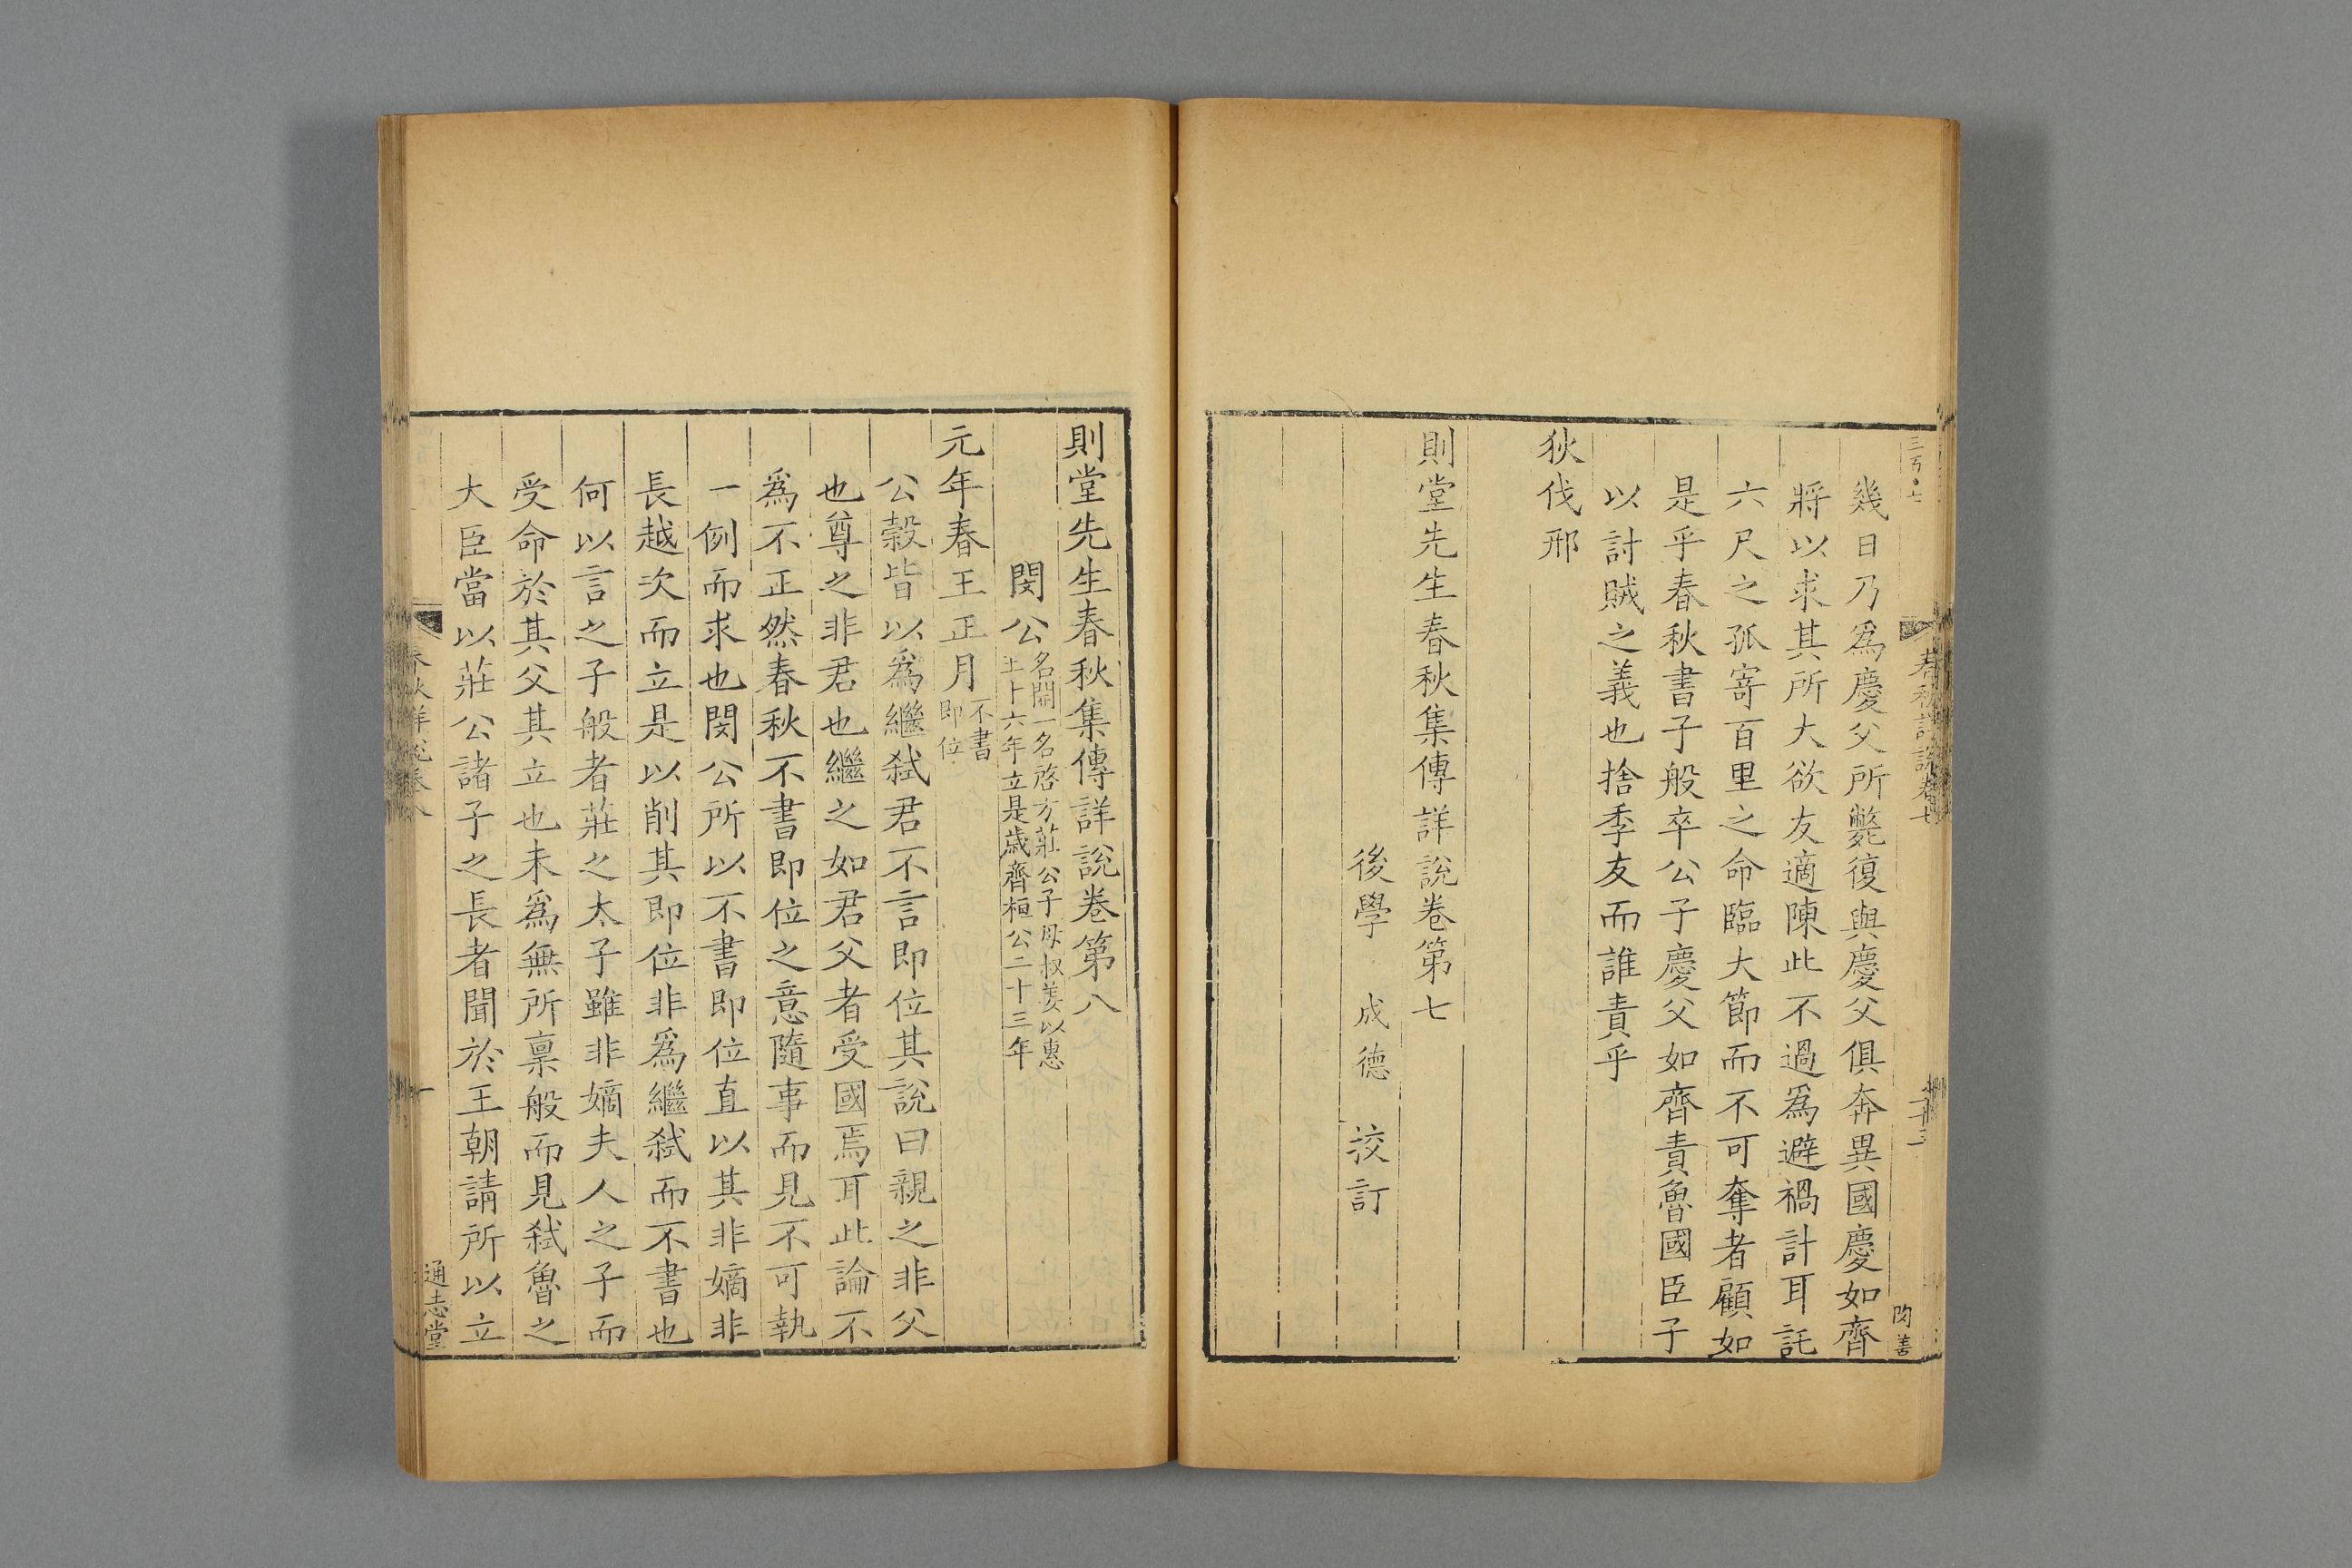 幾日乃爲慶父所斃復與慶父俱奔異國慶如齊
將以求其所大欲友適陳此不過爲避禍計耳託
六尺之孤寄百里之命臨大節而不可奪者顧如
是乎春秋書子般卒公子慶父如齊責魯國臣子
以討賊之義也捨季友而誰責乎
狄伐邢
則堂先生春秋集傳詳說卷第七
後學 成德 挍訂
則堂先生春秋集傳詳說卷第八
閔公名開一名啓方莊公子母叔姜以惠
王十六年立是歲齊桓公二十三年
元年春王正月不書
即位
公榖皆以爲繼弒君不言即位其說曰親之非父
也尊之非君也繼之如君父者受國焉耳此論不
爲不正然春秋不書即位之意隨事而見不可執
一例而求也閔公所以不書即位直以其非嫡非
長越次而立是以削其即位非爲繼弒而不書也
何以言之子般者莊之太子雖非嫡夫人之子而
受命於其父其立也未爲無所稟般而見弒魯之
大臣當以莊公諸子之長者聞於王朝請所以立
春秋詳說卷八
一
通志堂